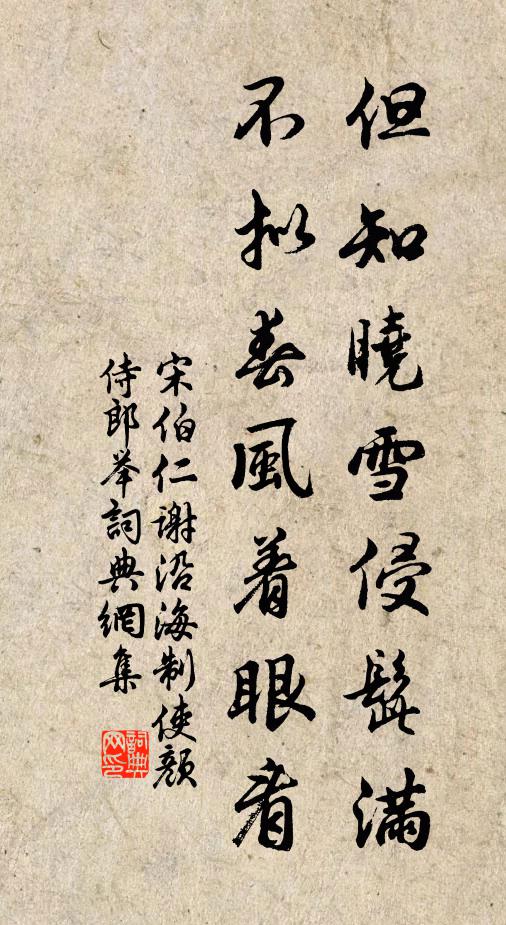 但知曉雪侵髭滿
不拟春風着眼看
宋伯仁谢沿海制使颜
侍郎举詞典網集
詞典
网印